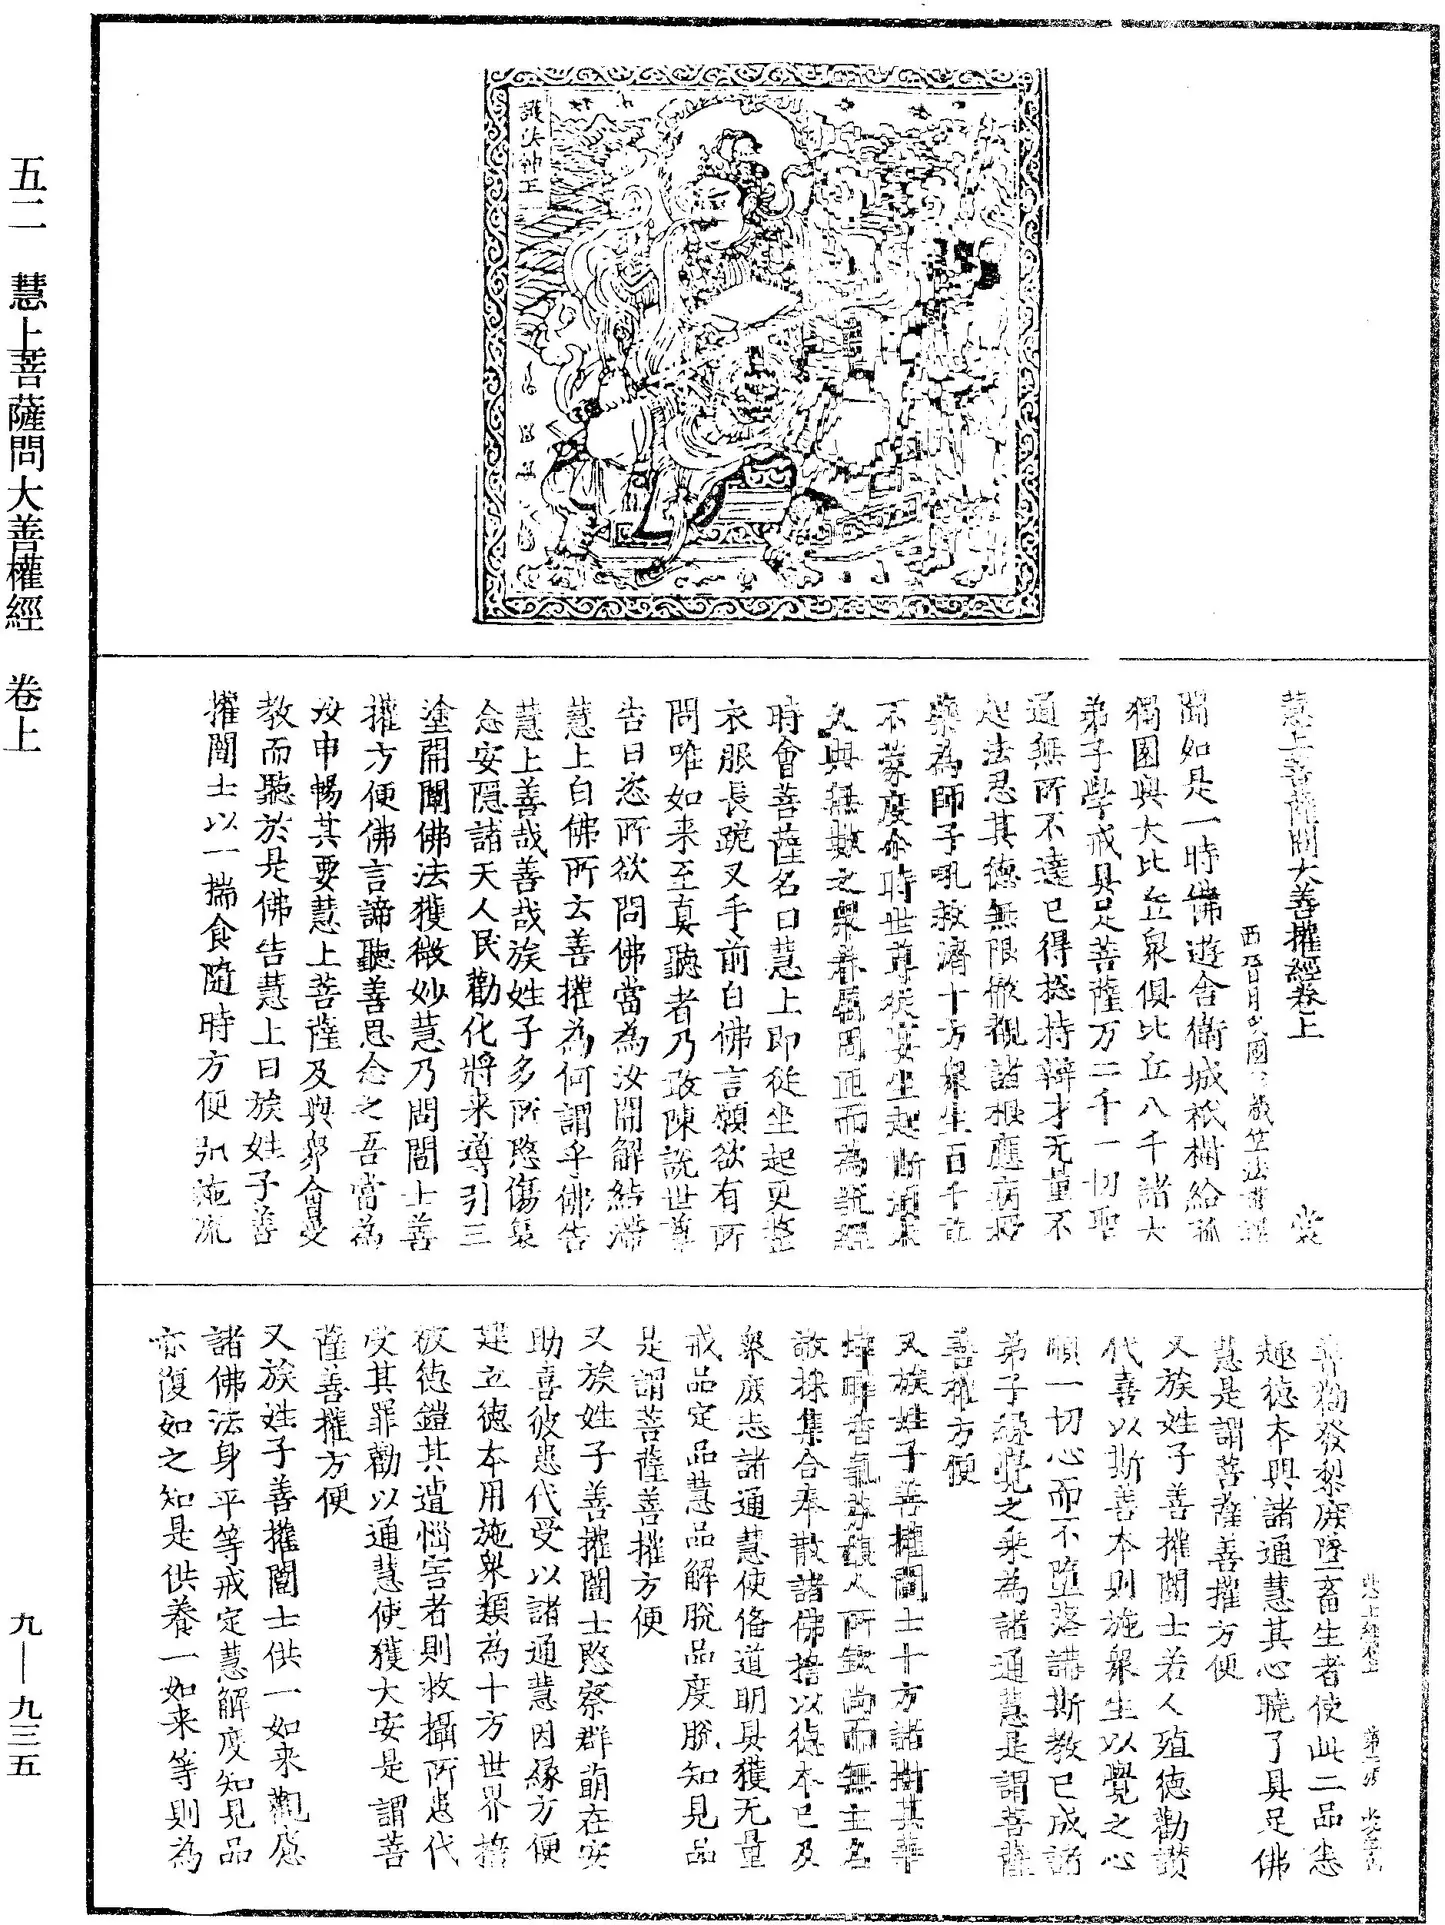 五二　慧上菩薩問大善權經　卷上
九—九三五
護法神王
慧上菩薩問大善權經卷上　　常
西晉月氏國三藏竺法護譯
聞如是一時佛遊舍衛城祇樹給孤
獨園與大比丘衆俱比丘八千諸大
弟子學戒具足菩薩万二千一切聖
通無所不達已得捴持辯才无量不
起法忍其德無限徹覩諸根應病授
藥為師子吼救濟十方衆生百千
不蒙度介時世尊從宴坐起
與無數之衆眷屬周迊而為說經
時會菩薩名曰慧上即從坐起更整
衣服長跪叉手前白佛言願欲有所
問唯如来至真聽者乃敢陳說世尊
告曰恣所欲問佛當為汝開解結滯
慧上白佛所云善權為何謂乎佛告
慧上善哉善哉族姓子多所愍傷哀
念安隱諸天人民勸化將来導引三
塗開闡佛法獲微妙慧乃問闓士善
權方便佛言諦聽善思念之吾當為
汝申暢其要慧上菩薩及與衆會受
教而聽於是佛告慧上曰族姓子善
權闓士以一揣食隨時方便
者使此二品悉
趣德本與諸通慧其心曉了具足佛
慧是謂菩薩善權方便
又族姓子善權闓士若人殖德勸讚
代喜以斯善本則施衆生以覺之心
順一切心而不墮落講斯教已成諸
弟子緣覺之乗為諸通慧是謂菩薩
善權方便
又族姓子善權闓士十方諸樹其華
人所欽尚而無主名
採集合奉散諸佛捨以德本已及
衆庶志諸通慧使備道明具獲无量
戒品定品慧品解脫品度脫知見品
是謂菩薩善權方便
又族姓子善權闓士愍察群萌在安
助喜彼患代受以諸通慧因緣方便
建立德本用施衆類為十方世界
被德鎧其遭惱害者則救攝所患代
受其罪勸以通慧使獲大安是謂菩
薩善權方便
又族姓子善權闓士供一如来觀
諸佛法身平等戒定慧解度知見品
亦復如之知是供養一如来等則為